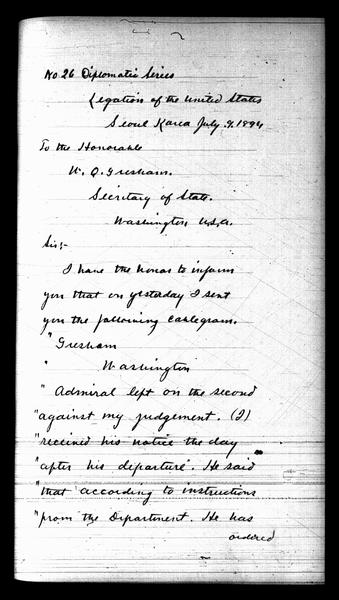 No. 26 Diplomatic Series
Legation of the United States
Seoul Korea July 9, 1894
To the Honorable
W. Q. Gresham.
Secretary of State.
Washington U.S.A.
Sir;-
I have the honor to inform
you that on yesterday I sent
you the following cablegram.
"Gresham
" Washington
" Admiral left on the second
"against my judgement. (I)
"received his notice the day
"after his departure". He said
"that according to instructions
"from the Department. He has
ordered